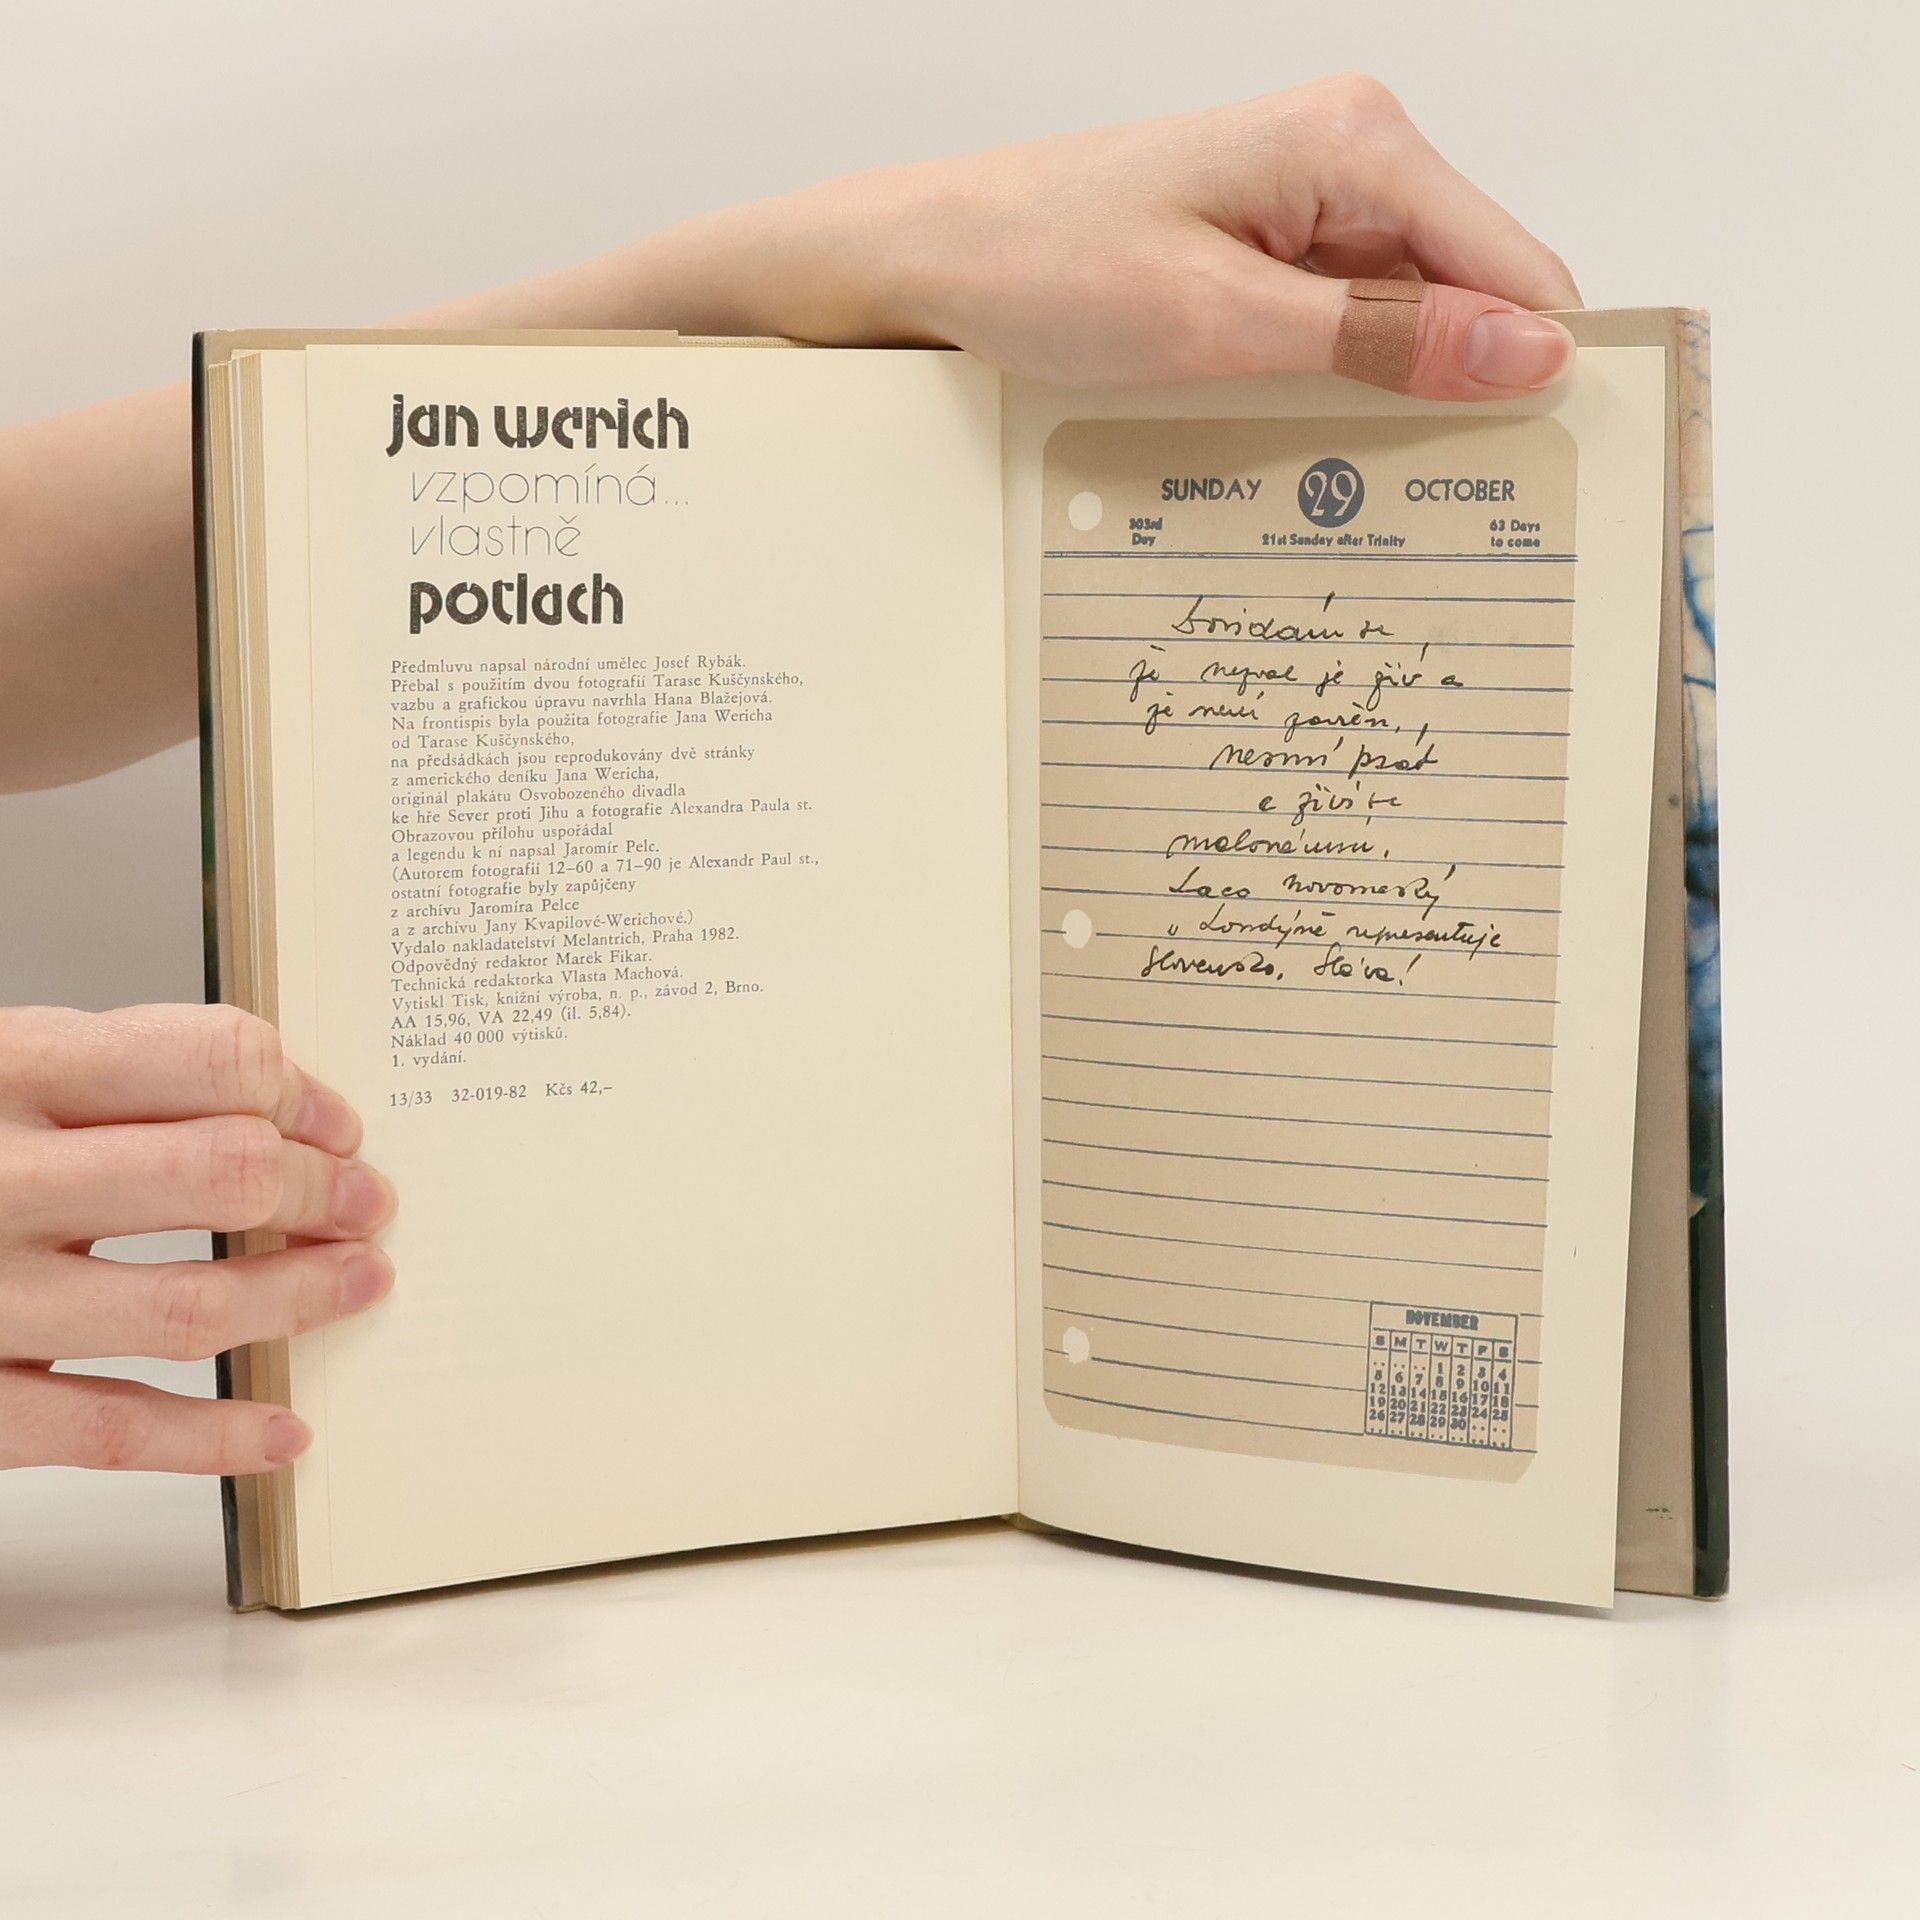 jan werich
vzpomíná...
vlastně
potlach
Předmluvu napsal národní umělec Josef Rybák.
Přebal s použitím dvou fotografií Tarase Kuščynského,
vazbu a grafickou úpravu navrhla Hana Blažejová.
Na frontispis byla použita fotografie Jana Wericha
od Tarase Kuščynského,
na předsádkách jsou reprodukovány dvě stránky
z amerického deníku Jana Wericha,
originál plakátu Osvobozeného divadla
ke hře Sever proti Jihu a fotografie Alexandra Paula st.
Obrazovou přílohu uspořádal
a legendu k ní napsal Jaromír Pelc.
(Autorem fotografií 12–60 a 71–90 je Alexandr Paul st.,
ostatní fotografie byly zapůjčeny
z archívu Jaromíra Pelce
a z archívu Jany Kvapilové-Werichové.)
Vydalo nakladatelství Melantrich, Praha 1982.
Odpovědný redaktor Marek Fikar.
Technická redaktorka Vlasta Machová.
Vytiskl Tisk, knižní výroba, n. p., závod 2, Brno.
AA 15,96, VA 22,49 (il. 5,84).
Náklad 40 000 výtisků.
1. vydání.
13/33 32-019-82 Kčs 42,–
SUNDAY 29 OCTOBER
303rd Day
21st Sunday after Trinity
63 Days to come
Dovídám se,
že nezval je živ a
že není zavřen,
nesmí psát
a živí se
Laco Novomeský
v Londýně representuje
Slovensko. Sláva!
NOVEMBER
S M T W T F S
.. .. .. 1 2 3 4
5 6 7 8 9 10 11
12 13 14 15 16 17 18
19 20 21 22 23 24 25
26 27 28 29 30 .. ..